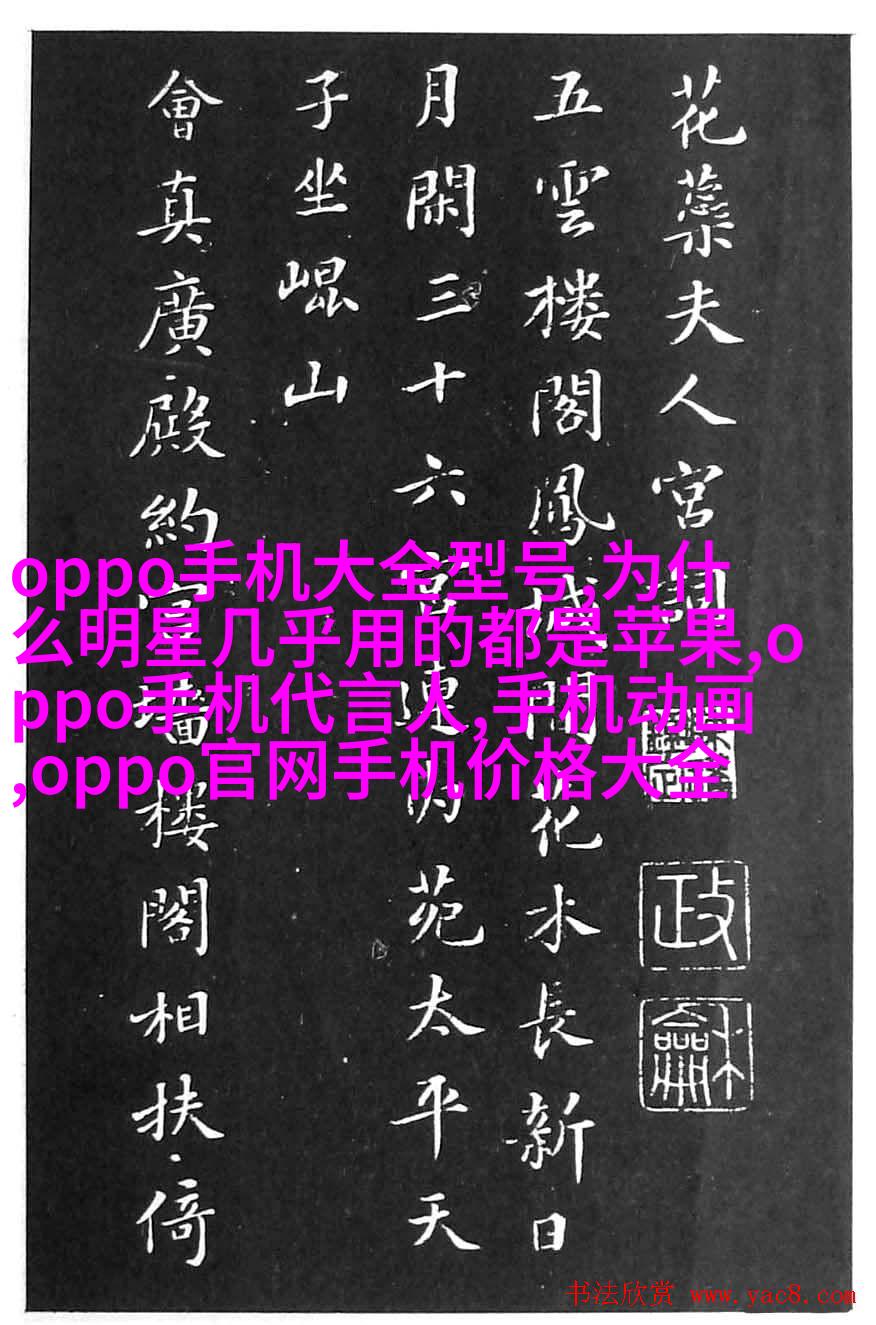 花蕊夫人宮詞
五雲樓閣鳳城間花木長新日
月閑三十六宮連内苑太平天
子坐崐山
會真廣殿約宮墻樓閣相扶倚
政龢
oppo手机大全型号,为什
么明星几乎用的都是苹果,o
ppo手机代言人,手机动画
,oppo官网手机价格大全
书法欣赏 www.yac8.com